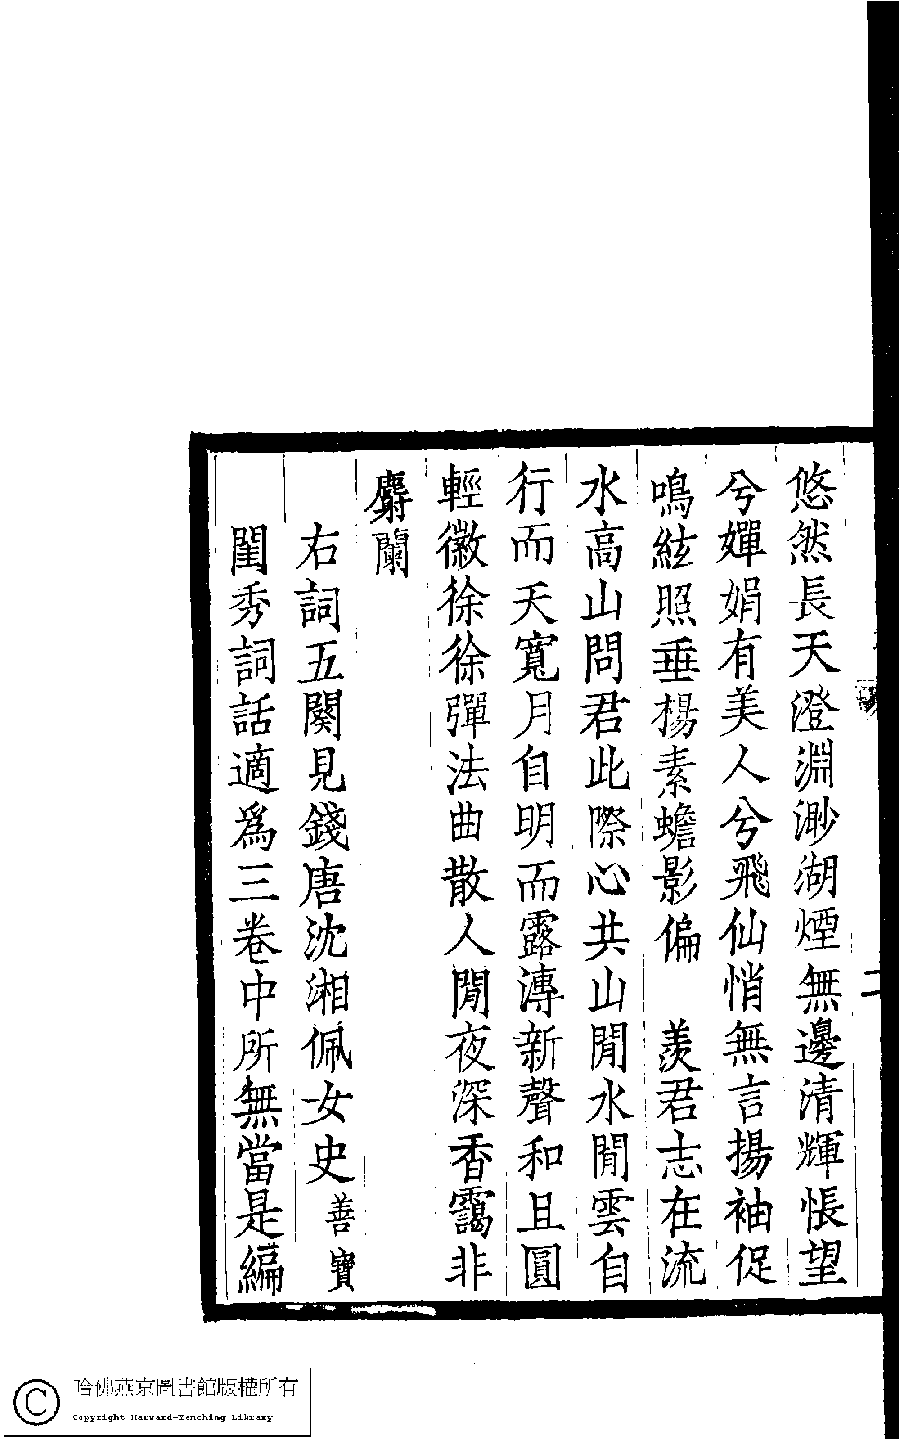 悠然長天澄淵渺湖煙無邊清輝悵望
兮嬋娟有美人兮飛仙悄無言揚袖促
鳴絃照垂楊素蟾影偏　羨君志在流
水高山問君此際心共山閒水閒雲自
行而天寬月自明而露漙新聲和且圓
輕徽徐徐彈法曲散人閒夜深香靄非
麝蘭
右詞五闋見錢唐沈湘佩女史善寶
閨秀詞話適為三卷中所無當是編
二
哈佛燕京圖書館版權所有
Copyright Harvard-Yenching Library